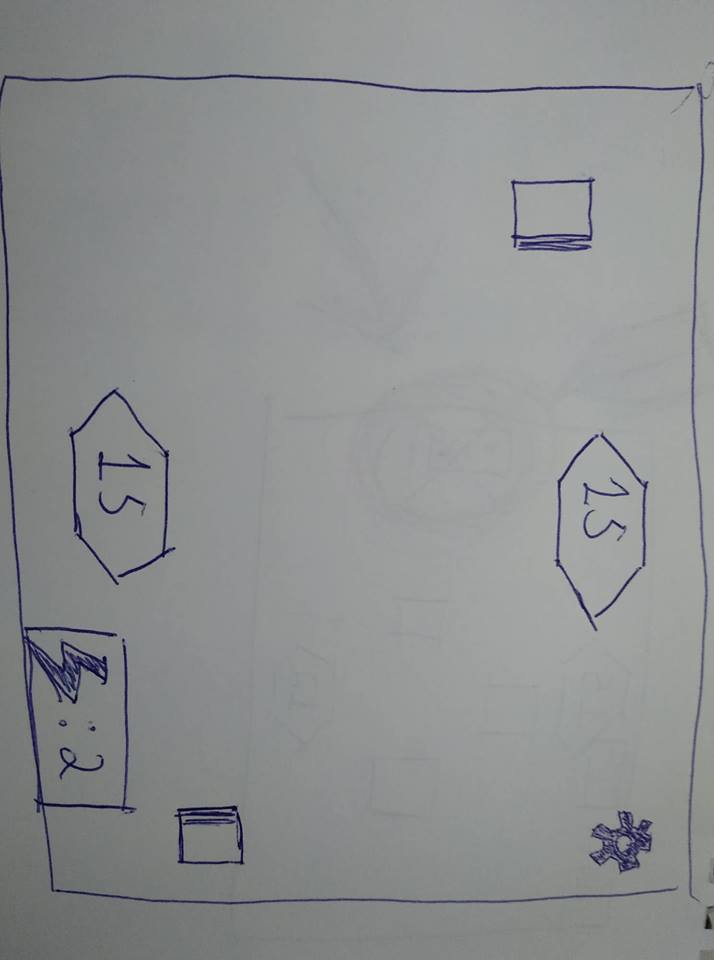 15
15
: 2